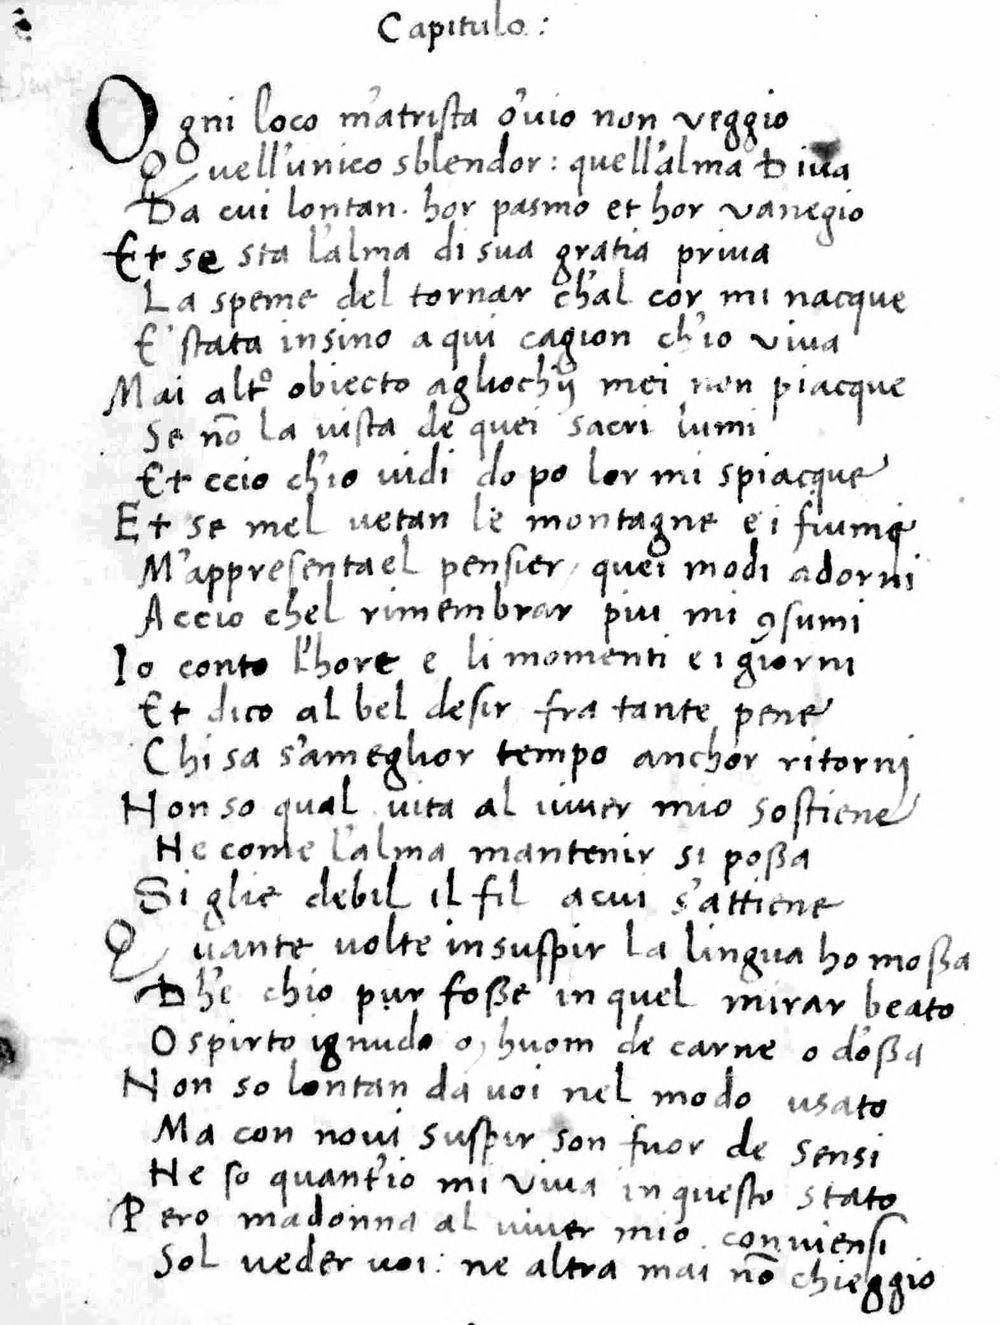 Capitulo:
Ogni loco m'atrista o'vio non veggio
Quell'unico sblendor: quell'alma Diva
Da cui lontan. hor pasmo et hor vanegio
Et se sta l'alma di sua gratia priva
La speme del tornar ch'al cor mi nacque
E' stata insino a qui cagion ch'io viva
Mai altº obiecto agliochÿ mei non piacque
Se nõ la vista de quei sacri lumi
Et ccio ch'io vidi do po lor mi spiacque
Et se mel vetan le montagne e i fiumi
M'appresentael pensier, quei modi adorni
Accio chel rimembrar piu mi ꝯsumi
Io conto l'hore e li momenti e i giorni
Et dico al bel desir fra tante pene
Chi sa s'ameglior tempo anchor ritorni
Non so qual vita al viver mio sostiene
Ne come l'alma mantenir si poßa
Si glie debil il fil acui s'attiene
Quante volte insuspir la lingua ho moßa
Dh'e chio pur foße in quel mirar beato
O spirto ignudo o, huom de carne o d'oßa
Non so lontan da voi nel modo usato
Ma con novi suspir son fuor de sensi
Ne so quant'io mi viva in questo stato
Pero madonna al viver mio conviensi
Sol veder voi: ne altra mai nõ chieggio